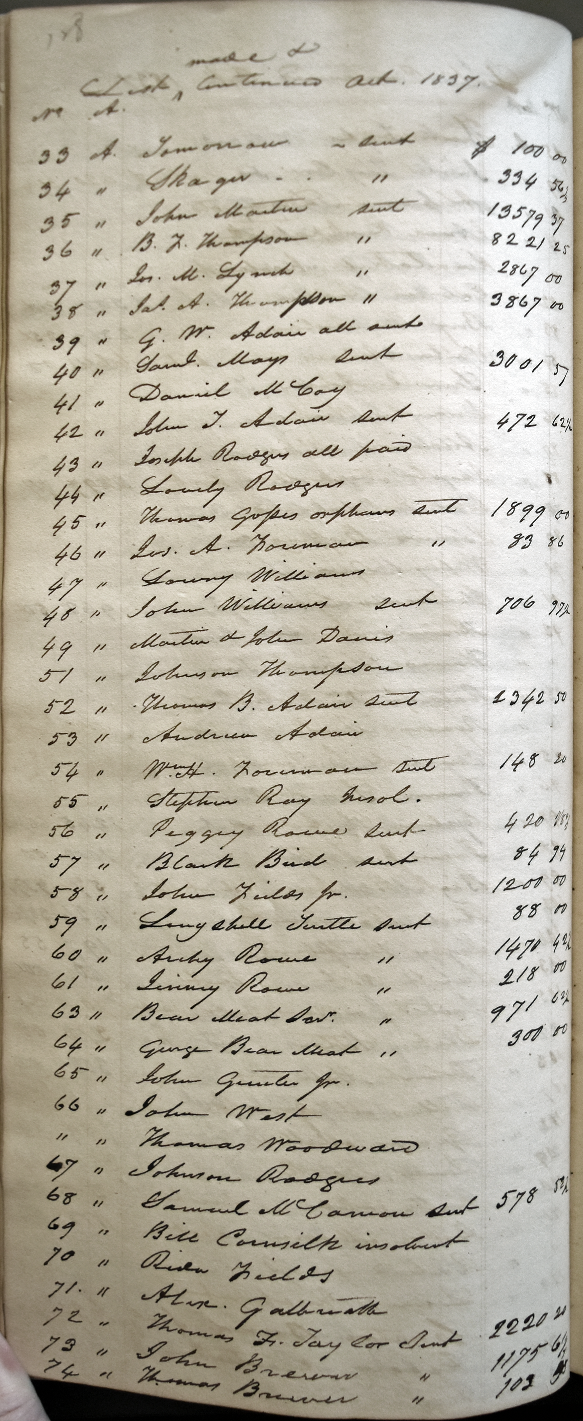 128
made &
List ^ Continued Oct. 1837.
No A.
33 A. Tomorrow - sent $ 100 00
34 " Skager - . " 334 56½
35 " John Martin sent 13579 37
36 " B. F. Thompson " 8221 25
37 " Jos. M. Lynch " 2867 00
38 " Jas. A. Thompson " 3867 00
39 " G. W. Adair all sent
40 " Saml. Mays sent 3001 57
41 " Daniel McCoy
42 " John T. Adair sent 472 62½
43 " Joseph Rodgers all paid
44 " Lovely Rodgers
45 " Thomas Goss orphans sent 1899 00
46 " Jos. A. Foreman " 83 86
47 " Lowry Williams
48 " John Williams sent 706 97½
49 " Martin & John Davis
51 " Johnson Thompson
52 " Thomas B. Adair sent 1342 50
53 " Andrew Adair
54 " Wm H. Foreman sent 148 20
55 " Stephen Ray Insol.
56 " Peggy Rowe sent 420
57 " Black Bird sent 84 94
58 " John Fields Jr. 1200 00
59 " Longshell Turtle sent 88 00
60 " Archy Rowe " 1470 42½
61 " Jinney Rowe " 218 00
63 " Bear Meat Sr. " 971 62½
64 " George Bear Meat " 300 00
65 " John Gunter Jr.
66 " John West
" " Thomas Woodward
67 " Johnson Rodgers
68 " Samuel McCamon sent 578
69 " Bill Cornsilk insolvent
70 Rider Fields
71. " Alex. Galbreath
72 " Thomas F. Taylor sent 2220 20
73 " John Brewer " 1175
74 " Thomas Brewer " 103